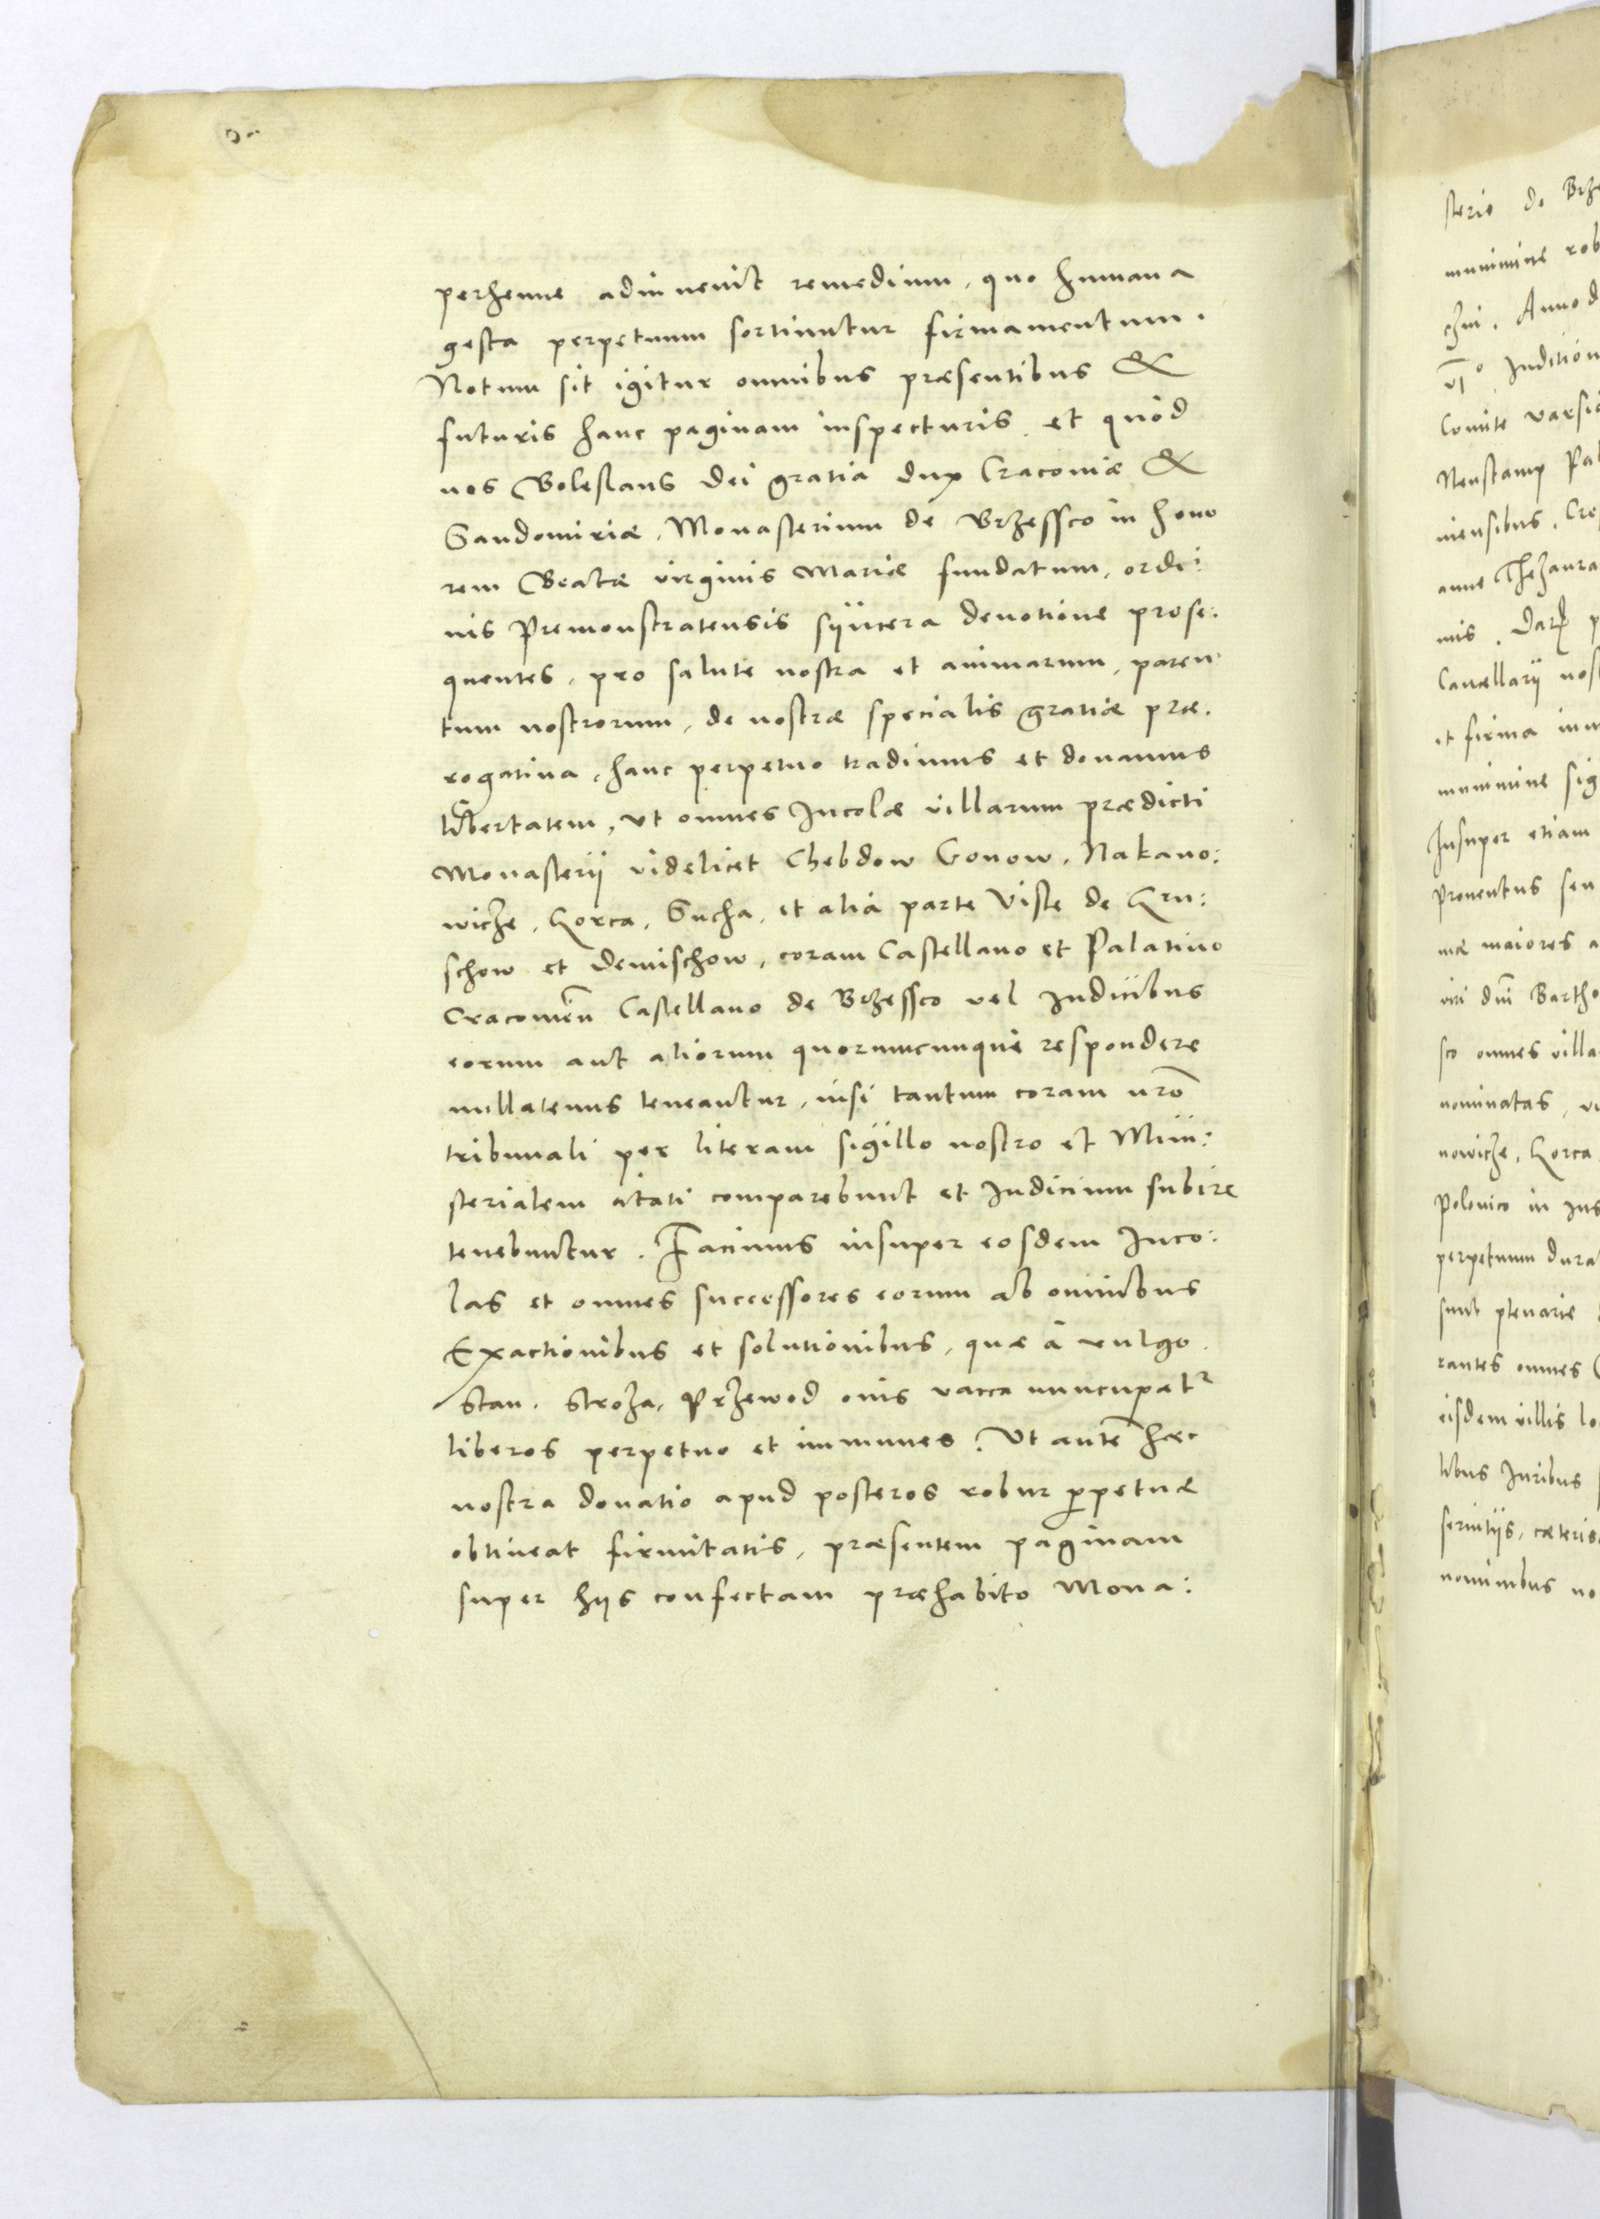 perhenne adinvenit remedium, quo humana
gesta perpetuum sortiuntur firmamentum.
Notum sit igitur omnibus præsentibus &
futuris hanc paginam inspecturis, et quòd
nos Boleslaus dei gratia dux Cracoviæ &
Sandomiriæ, Monasterium de Brzessco in hono
rem Beatæ virginis Mariæ fundatum, ordi:
nis Premonstratensis syncera devotione prose:
quentes, pro salute nostra et animarum, paren
tum nostrorum, de nostræ specialis gratiæ præ.
rogativa, hanc perpetuo tradimus et donamus
libertatem, ut omnes Incolæ villarum prædicti
Monasterii videlicet Chebdow Gonow, Nakano:
wicze, Gorca, Sucha, et alia parte Visle de Gru:
schow et Demischow, coram Castellano et Palatino
Cracovien̄ Castellano de Brzessco vel Iudicibus
eorum aut aliorum quorumcunque respondere
nullatenus teneantur, nisi tantum coram nr̄o
tribunali per literam sigillo nostro et Mini:
sterialem citati comparebunt et Iudicium subire
tenebuntur. Facimus insuper eosdem Inco:
las et omnes successores eorum ab omnibus
Exactionibus et solutionibus, quæ à vulgo
Stan. Stroza, Przewod ovis vacca nuncupatr
liberos perpetuo et immunes. Ut autē hæc
nostra donatio apud posteros robur ꝑpetuæ
obtineat firmitatis, præsentem paginam
super hiis confectam præhabito Mona:
sterio de
munimine
Anno
Inditión
Comite
Palat
niensibus,
anne Thezaura
nis. Dat
Cancellarii
et firma
munimine
Insuper etiam
Proventus seu
maiores
viri dn̄i Bartho
sco omnes villa
nominatas,
nowicze, Gorca
Polonico in Ius
perpetuum dura
sunt plenarie
rantes omnes
eisdem villis lo
libus Iuribus
servitiis, cæteris
nominibus no